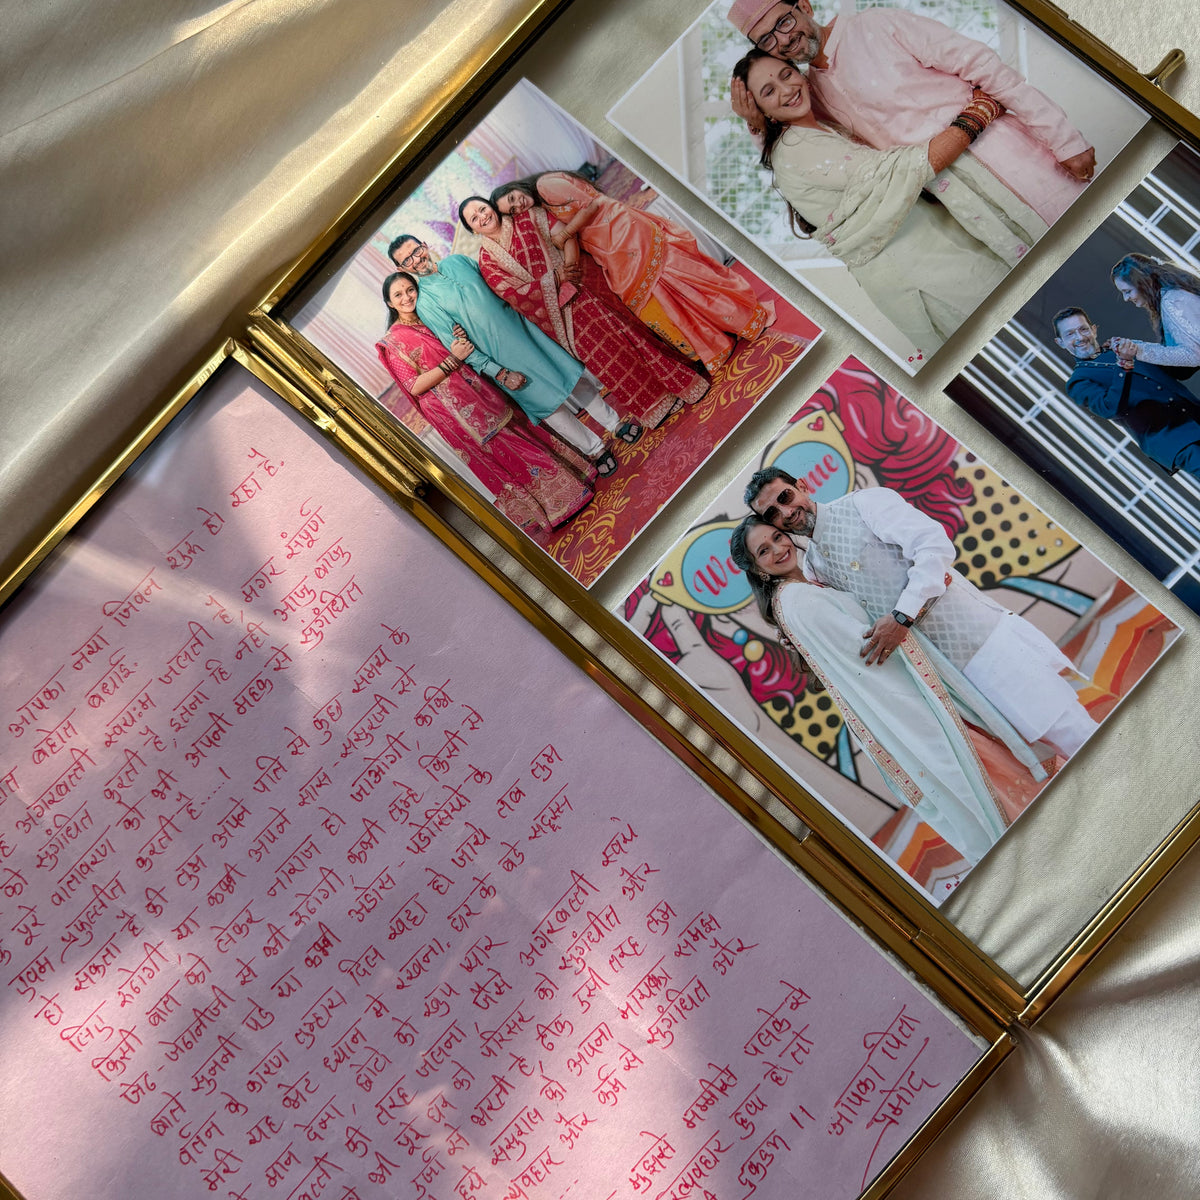 आपका नया जिवन शुरू हो रहा है.
बहोत बधाई.
अगरबत्ती स्वयःम जलती है, मगर संपूर्ण
को सुगंधित करती है, इतना हि नही, आजु बाजु
के पुरे वातावरण को भी अपनी महक से सुगंधित
एवम प्रफुल्लीत करती है....!
हो सकता है की तुम अपने पति से कुछ समय के
लिए रुठोगी, या कभी अपने सास-ससुरजी से
किसी बात को लेकर नाराज हो जाओगी, कभी
जेठ-जेठानीजी से भी रुठोगी, कभी तुम्हे किसी से
बाते सुननी पडे या कभी अडोस-पडोसियो के
वर्तन के कारण तुम्हारा दिल खट्टा हो जाये तब तुम
मेरी यह भेट ध्यान मे रखना, घर के बडे सदस्य
को मान देना, छोटो को खुप प्यार
की तरह जलना, जैसे अगरबत्ती स्वयं
भी पुरे घर को, परिसर को सुगंधीत और
उर्जा से भरती है, ठीक उसी तरह तुम
ससुराल को अपना मायका समझ
व्यवहार और कर्म से सुगंधित और
मुझसे
व्यवहार हुवा हो तो
आपका पिता
प्रमोद
Welcome
We